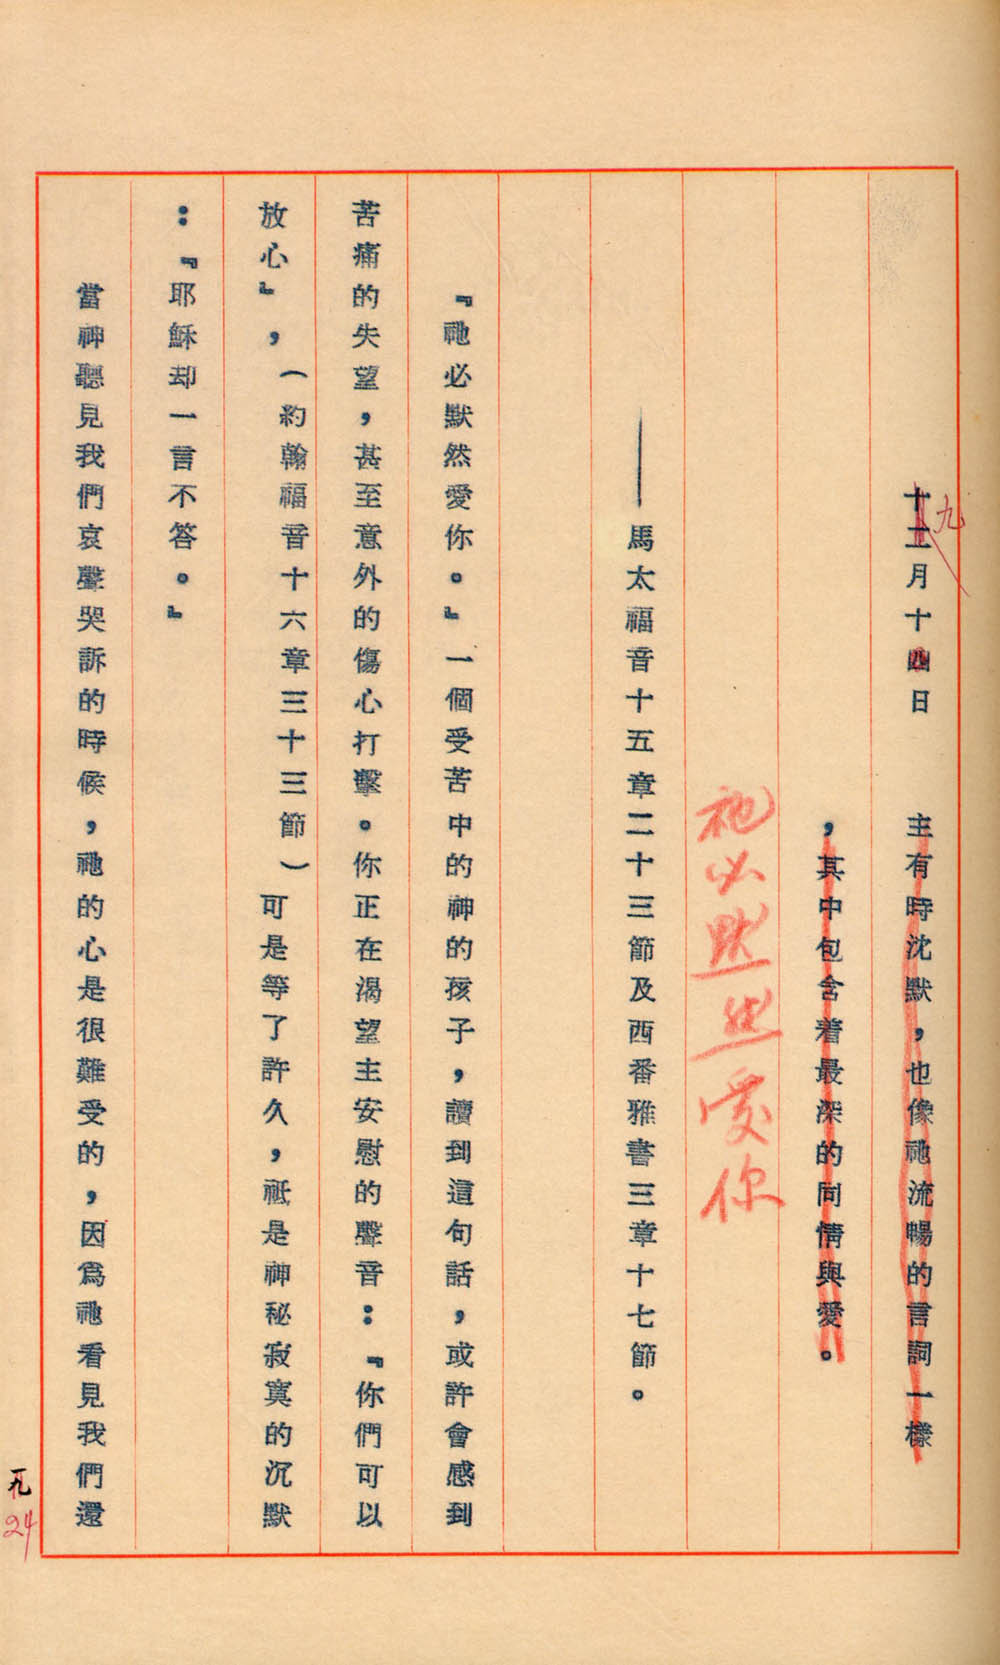 十二月十四日　主有時沈默，也像祂流暢的言詞一樣
九
，其中包含着最深的同情與愛。
祂必默然愛你
——馬太福音十五章二十三節及西番雅書三章十七節。
『祂必默然愛你。』一個受苦中的神的孩子，讀到這句話，或許會感到
苦痛的失望，甚至意外的傷心打擊。你正在渴望主安慰的聲音：『你們可以
放心』，（約翰福音十六章三十三節）可是等了許久，祗是神秘寂寞的沉默
：『耶穌却一言不答。』
當神聽見我們哀聲哭訴的時候，祂的心是很難受的，因爲祂看見我們還
24